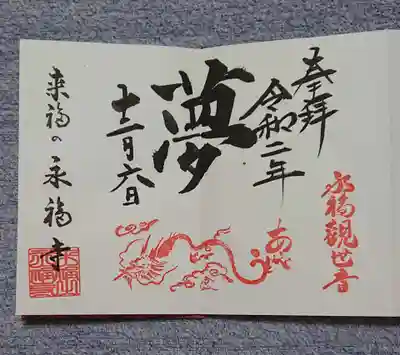 奉拝
永福観世音
令和二年
夢
十二月六日
来福の永福寺